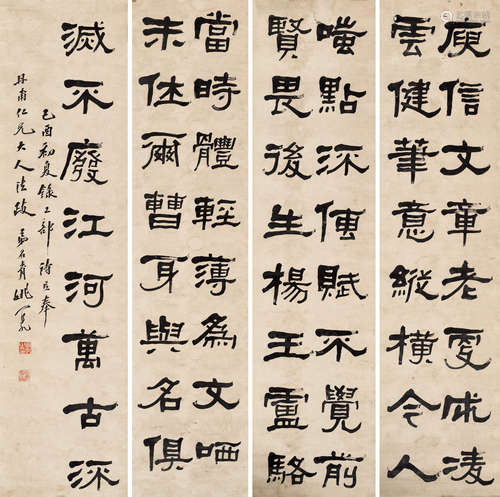 庾信文章老更成凌
雲健筆意縱橫今人
嗤點流傳賦不覺前
賢畏後生楊王盧駱
當時體輕薄為文哂
未休爾曹身與名俱
滅不廢江河萬古流
己酉初夏錄工部詩
仁兄大人法